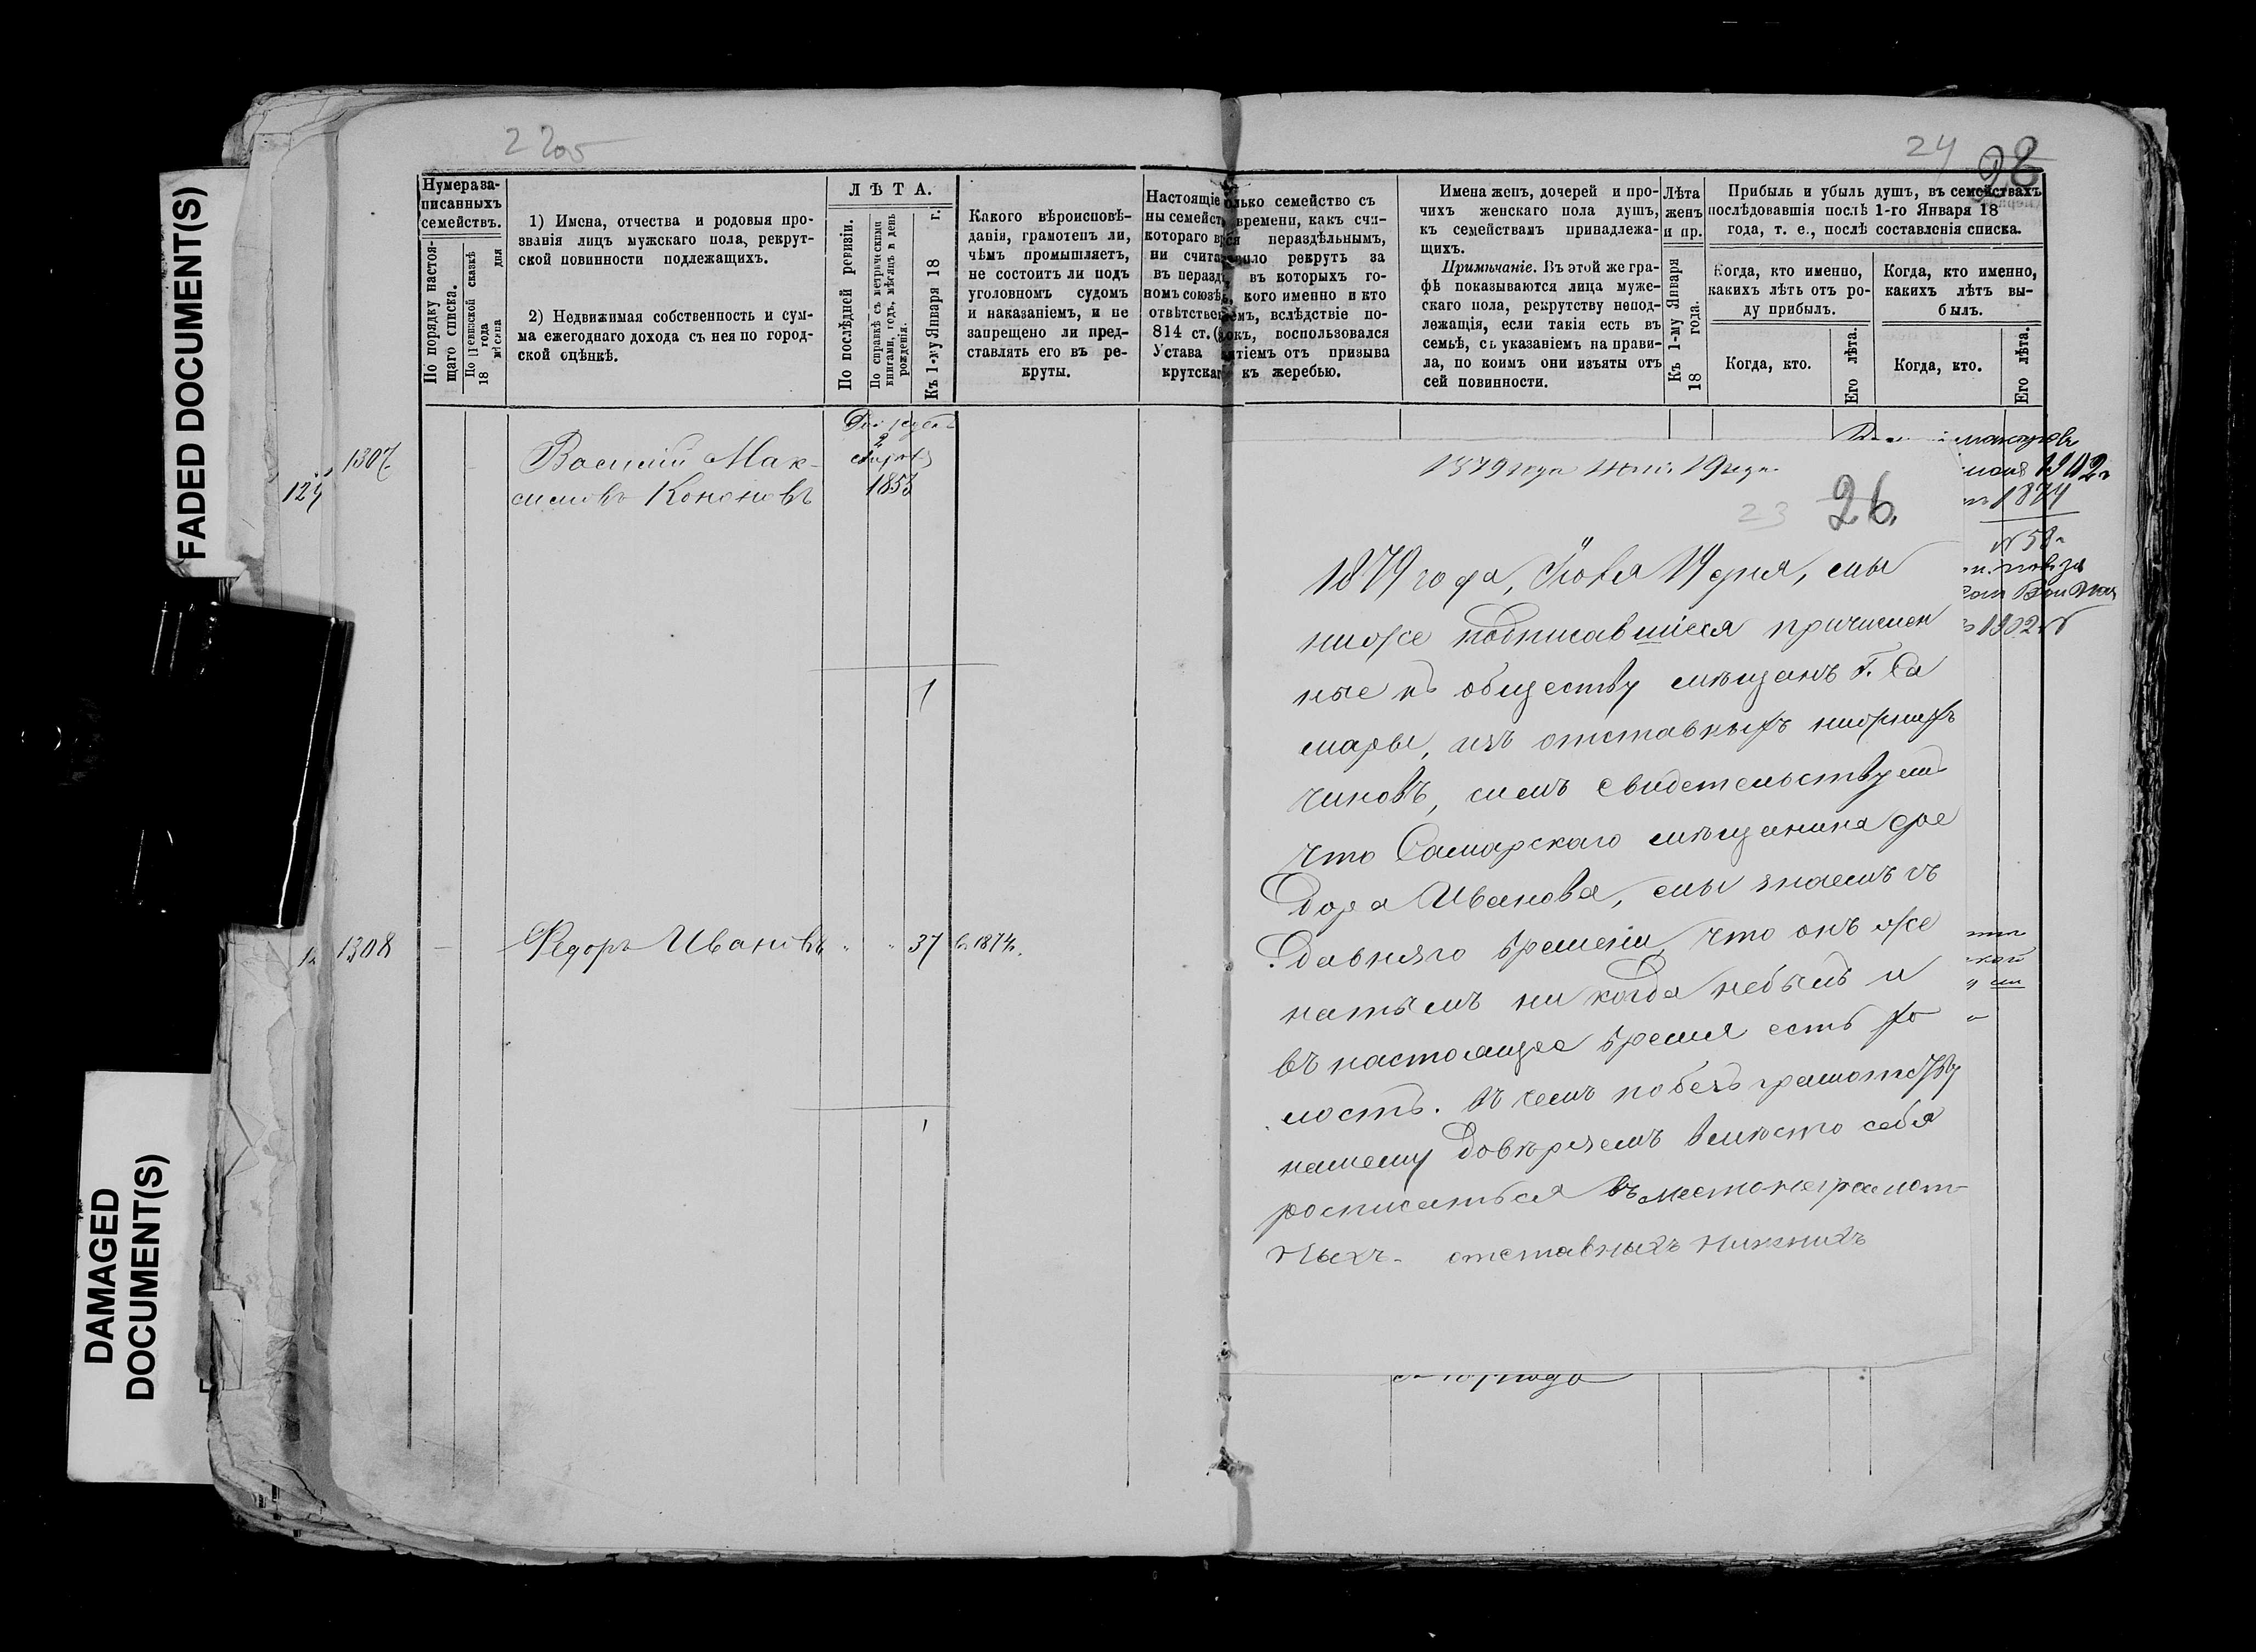 FADED DOCUMENT(S)
DAMAGED
DOCUMENT(S)
2205
24
28
Нумера за-
писанныхъ
семействъ.
По порядку настоя-
щаго списка.
По ревизской сказкѣ
18 года
мѣсяца дня
1) Имена, отчества и родовыя про-
званія лицъ мужскаго пола, рекрут-
ской повинности подлежащихъ.
2) Недвижимая собственность и сум-
ма ежегоднаго дохода съ нея по город-
ской оцѣнкѣ.
ЛѢТА.
По послѣдней ревизіи.
По справкѣ съ метрическими
книгами, годъ, мѣсяцъ и день
рожденія.
Къ 1-му Января 18 г.
Какого вѣроисповѣ-
данія, грамотенъ ли,
чѣмъ промышляетъ,
не состоитъ ли подъ
уголовномъ судомъ
и наказаніемъ, и не
запрещено ли пред-
ставлять его въ ре-
круты.
Настоящіе
ны семейст
котораго в
ни счита
въ нераз
номъ союзѣ
отвѣтстве
814 ст. (
Устава
крутска
олько семейство съ
времени, какъ счи-
ся нераздѣльнымъ,
ило рекрутъ за
въ которыхъ го-
кого именно и кто
емъ, вслѣдствіе по-
окъ, воспользовался
ятіемъ отъ призыва
къ жеребью.
Имена женъ, дочерей и про-
чихъ женскаго пола душъ,
къ семействамъ принадлежа-
щихъ.
Примѣчаніе. Въ этой же гра-
фѣ показываются лица муже-
скаго пола, рекрутству непод-
лежащія, если такія есть въ
семьѣ, съ указаніемъ на прави-
ла, по коимъ они изъяты отъ
сей повинности.
Лѣта
женъ
и пр.
Къ 1-му Января
18 года.
Прибыль и убыль душъ, въ семействахъ
послѣдовавшія послѣ 1-го Января 18
года, т. е., послѣ составленія списка.
Когда, кто именно,
какихъ лѣтъ отъ ро-
ду прибылъ.
Когда, кто.
Его лѣта.
Когда, кто именно,
какихъ лѣтъ вы-
былъ.
Когда, кто.
Его лѣта.
1307
Василій Мак-
симовъ Кононовъ
2
1853
1
1308
Федоръ Ивановъ
37
1
1879 года Іюня 19 дня
23 26.
1879 года, Іюня 19 дня, мы
ниже подписавшіеся причислен
ные къ обществу мѣщанъ Г. Са
мары, изъ отставныхъ нижнихъ
чиновъ, симъ свидетельствуемъ
что Самарскаго мѣщанина Фе
дора Иванова, мы знаемъ съ
давняго времени, что онъ же
натымъ ни когда небылъ и
въ настоящее время есть хо
лостъ. Въ чемъ по безъ грамотству
нашему довѣряемъ вмѣсто себя
росписаться въместо неграмот-
ныхъ отставныхъ нижнихъ
1902
1874
1902